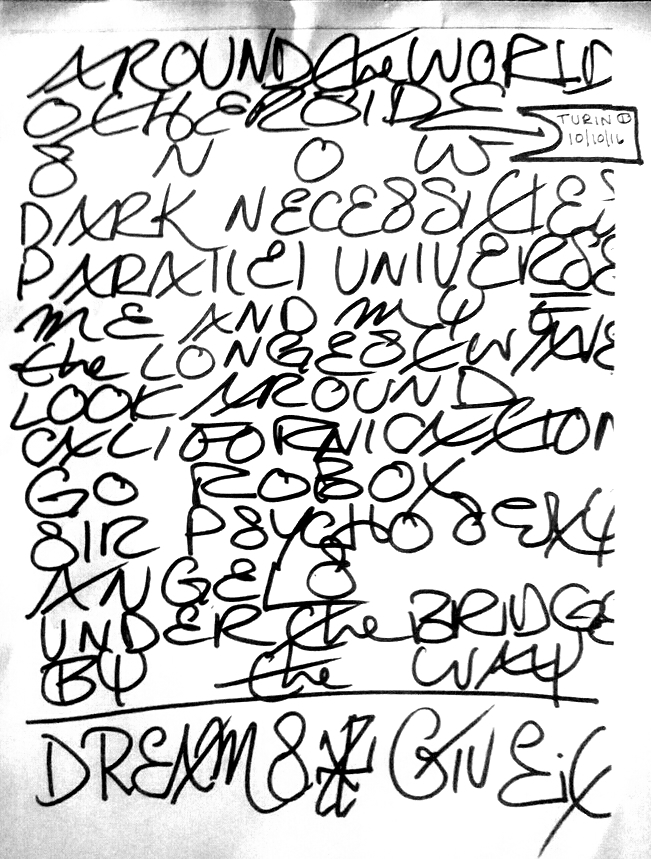 AROUND the WORLD
OTHERSIDE
TURIN ①
10/10/16
SNOW
DARK NECESSITIES
PARALLEL UNIVERSE
ME AND MY F
the LONGEST WAVE
LOOK AROUND
CALIFORNICATION
GO ROBOT
SIR PSYCHO SEXY
ANGELS
UNDER the BRIDGE
BY the WAY
DREAMS * GIVE it